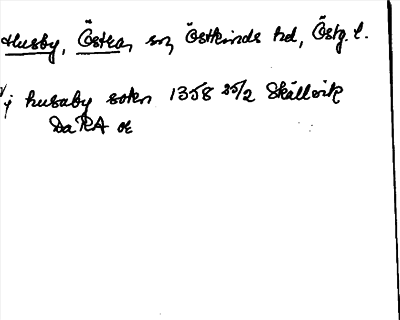 Husby, Östra, sn, Östkinds hd, Östg. l.
j husaby sokn 1358 25/2 Skällvik
DaRA or